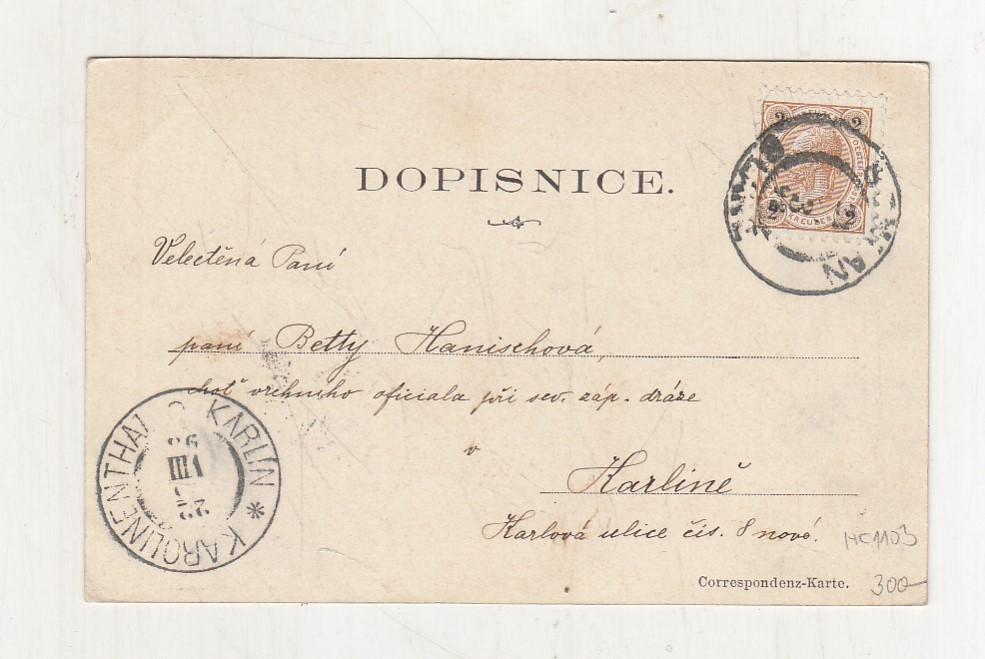 DOPISNICE.
2 2
2 KREUZER 2
Velectěná Paní
paní Betty Hanischová,
choť vrchního oficiala při sev. záp. dráze
v
Karlíně
KAROLINENTHAL KARLÍN *
Karlová ulice čís. 8 nové.
HC1103
Correspondenz-Karte.
300-